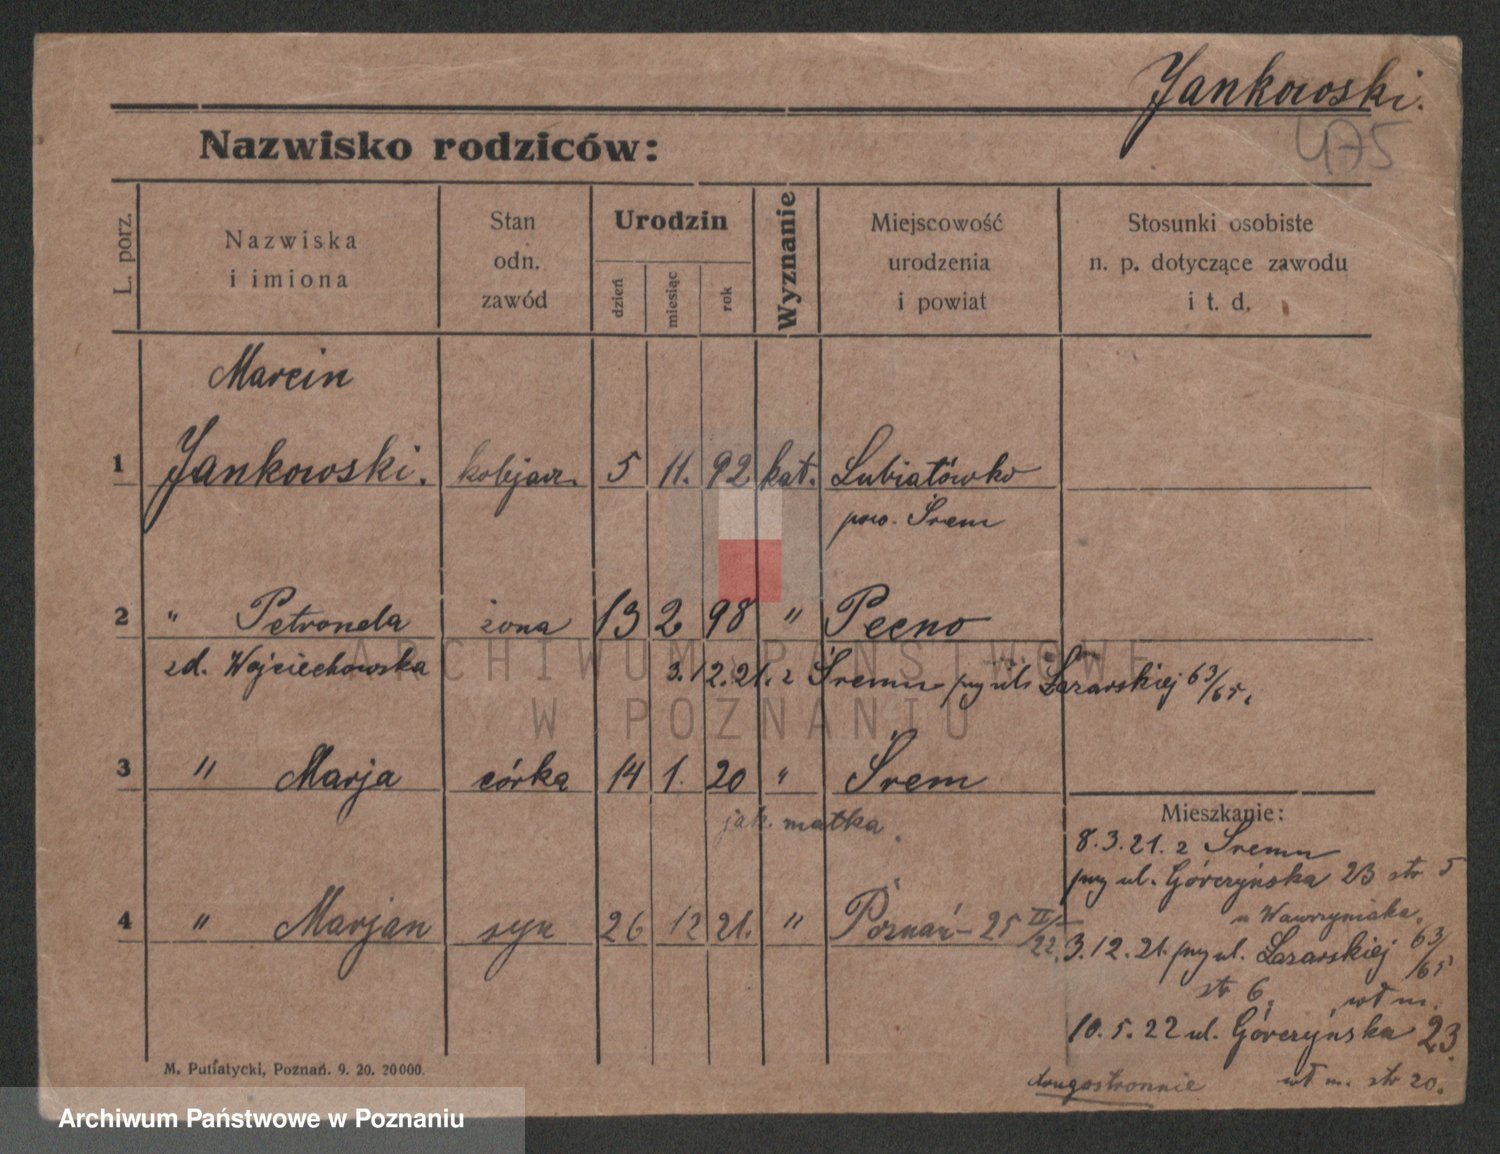 Jankowski.
475
Nazwisko rodziców:
L. porz.
Nazwiska
i imiona
Stan
odn.
zawód
Urodzin
dzień
miesiąc
rok
Wyznanie
Miejscowość
urodzenia
i powiat
Stosunki osobiste
n. p. dotyczące zawodu
i t. d.
Marcin
1 Jankowski. kolejarz. 5 11. 92 kat. Lubiatówko
pow. Śrem
2 " Petronela żona 13 2 98 " Pecno
zd. Wojciechowska 3.12.21. z Śremu przy ul. Łazarskiej 63/65.
3 " Marja córka 14 1. 20 " Śrem
jak. matka.
4 " Marjan syn 26 12 21. " Poznań - 25 II/22.
Mieszkanie:
8.3.21. z Śremu
przy ul. Górczyńska 23 str 5
u Wawrzyniaka.
3.12.21. przy ul. Łazarskiej 63/65
str 6. wł m.
10.5.22 ul. Górczyńska 23.
wł m. str 20.
drugostronnie
M. Putiatycki, Poznań. 9. 20. 20000.
ARCHIWUM PAŃSTWOWE
W POZNANIU
Archiwum Państwowe w Poznaniu